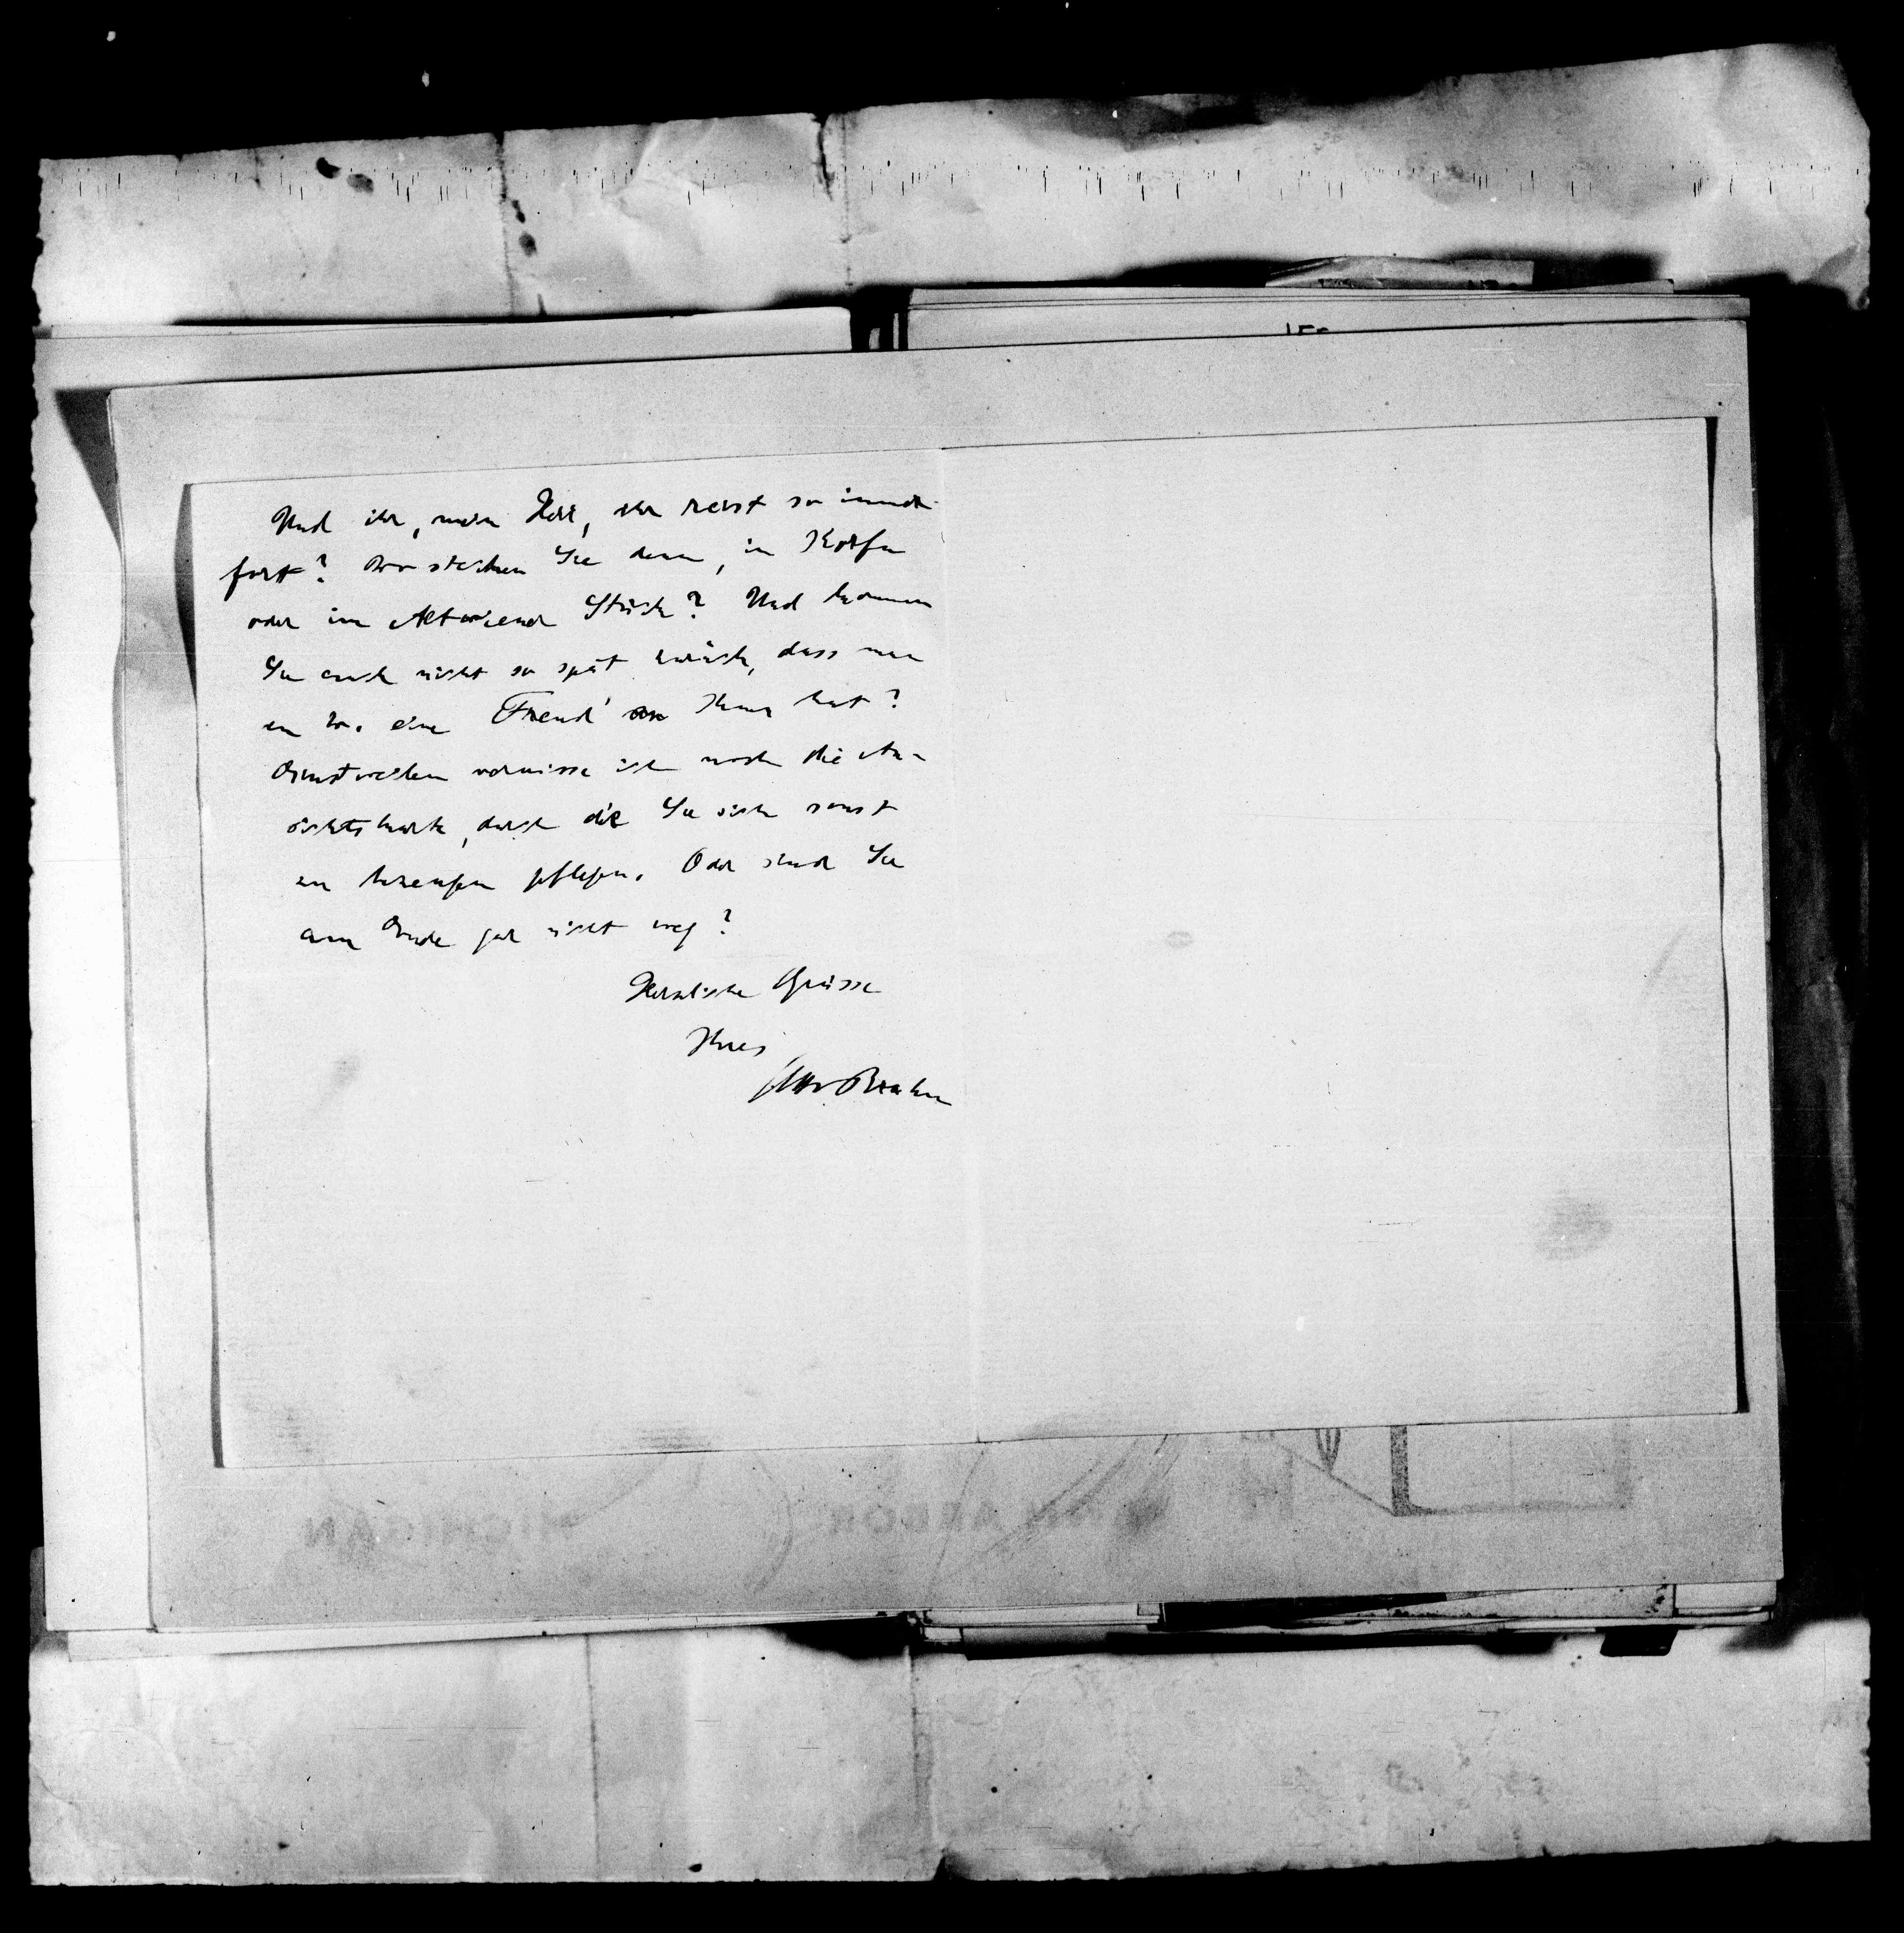 Und ihr, mein Herr, ihr reist so immer
fort? Wo stecken Sie denn, in Korfu
oder im Altwiener Stück? Und kommen
Sie auch nicht so spät zurück, dass man
in W. eine Freud' an Ihnen hat?
Einstweilen vermisse ich noch die An-
sichtskarte, durch die Sie sich sonst
zu bezeugen pflegen. Oder sind Sie
am Ende gar nicht weg?
Herzliche Grüsse
Ihres
Otto Brahm
ANN ARBOR
MICHIGAN